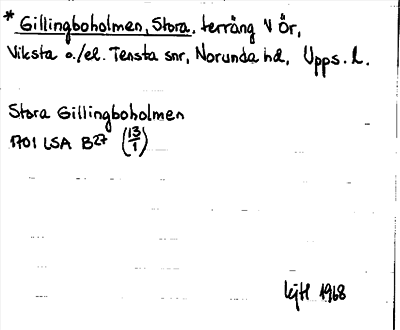 * Gillingboholmen, Stora, terräng V Ör,
Viksta o./el. Tensta snr, Norunda hd, Upps. l.
Stora Gillingboholmen
1701 LSA B27 (13/1)
1968